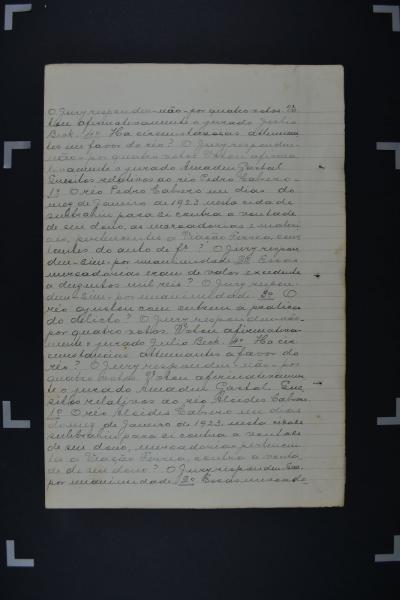 O Jury respondeu-não-por quatro votos. Vo
tou afirmativamente o jurado Julio
Beck. 4º Ha circumstancias attenuan
tes em favor do réo? O Jury respondeu
não-por quatro votos. Votou affirma
tivamente o jurado Amadeu Gastal.
Quesitos relativos ao réo Pedro Cabrero-
1º O réo Pedro Cabrero em dias do
mez de Janeiro de 1923 nesta cidade
subtrahiu para si contra a vontade
de seu dono, as mercadorias e materi
aes, pertencentes a Viação Ferrea, cons
tantes do auto de fs ? O Jury respon
deu-Sim-por unanimidade. 2º Essas
mercadorias eram de valor excedente
a duzentos mil reis? O Jury respon
deu-Sim-por unanimidade. 3º O
réo ajustou com outrem a pratica
do delicto? O Jury respondeu-não-
por quatro votos. Votou afirmativa-
mente o jurado Julio Beck. 4º Ha cir
cumstancias attenuantes a favor do
réo? O Jury respondeu-não-por
quatro votos. Votou afirmativamen
te o jurado Amadeu Gastal. Que
sitos relativos ao réo Alcides Cabrero
1º O réo Alcides Cabrero em dias
do mez de Janeiro de 1923, nesta cidade
subtrahiu para si contra a vontade
de seu dono, mercadorias pertencen
tes a Viação Ferrea, contra a vonta
de de seu dono? O Jury respondeu-Sim
por unanimidade. 2º Essas mercado